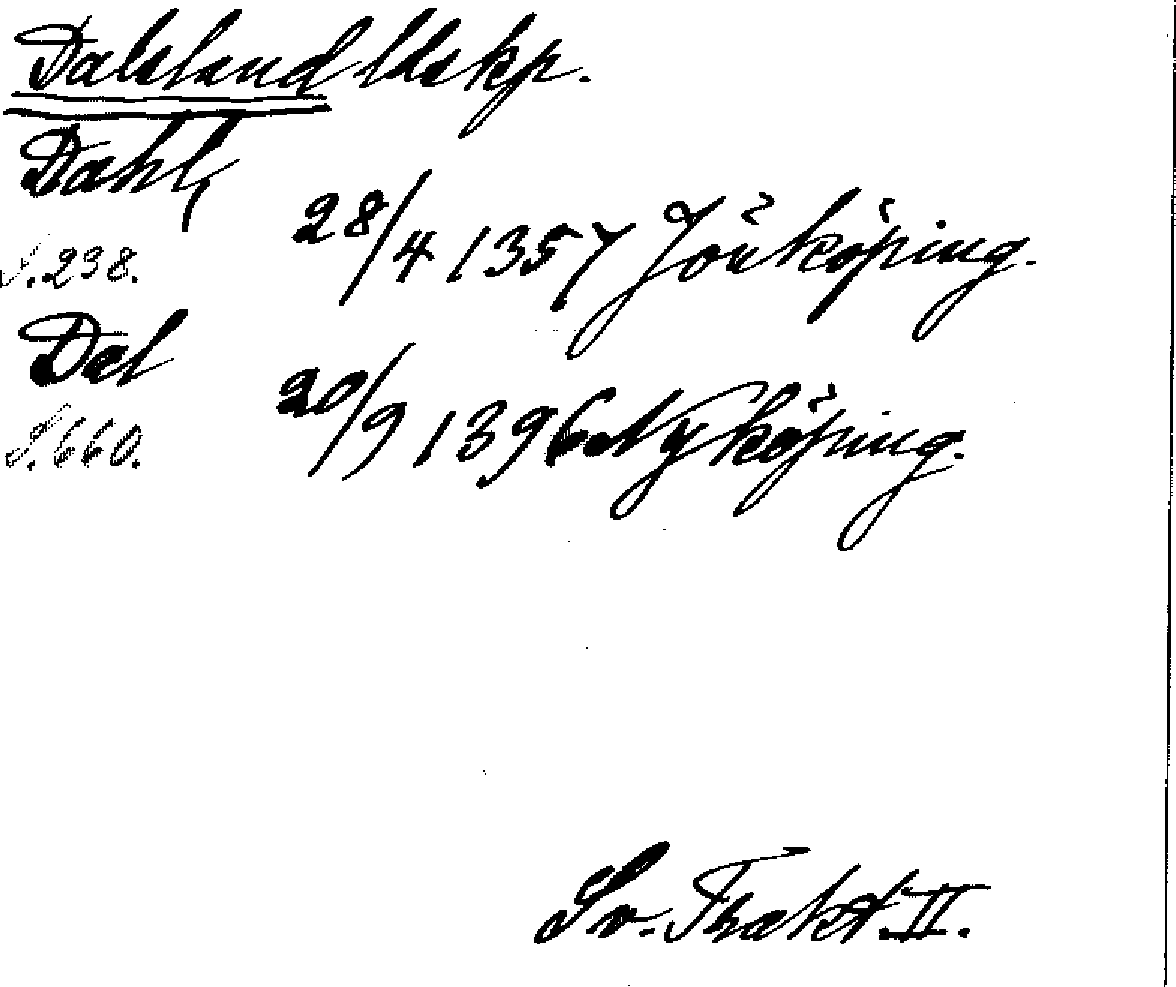 Dalsland ldskp.
Dahl,
28/4 1357 Jönköping.
S. 238.
Dal
20/9 1396 Nyköping.
S. 660.
Sv. Trakt. II.